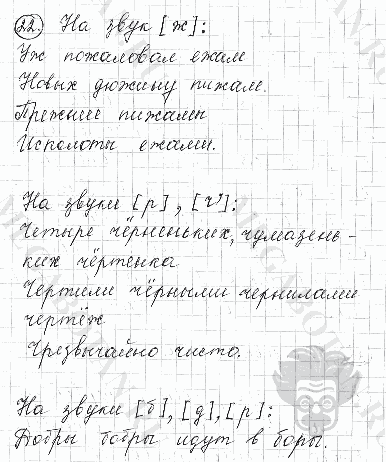 22. На звук [ж]:
Уж пожаловал ежам
Новых дюжину пижам.
Прежние пижамы
Исколоты ежами.
На звуки [р], [ч']:
Четыре чёрненьких, чумазень-
ких чертёнка
Чертили чёрными чернилами
чертёж
Чрезвычайно чисто.
На звуки [б], [д], [р]:
Добры бобры идут в боры.
MEGABOTAN.RU